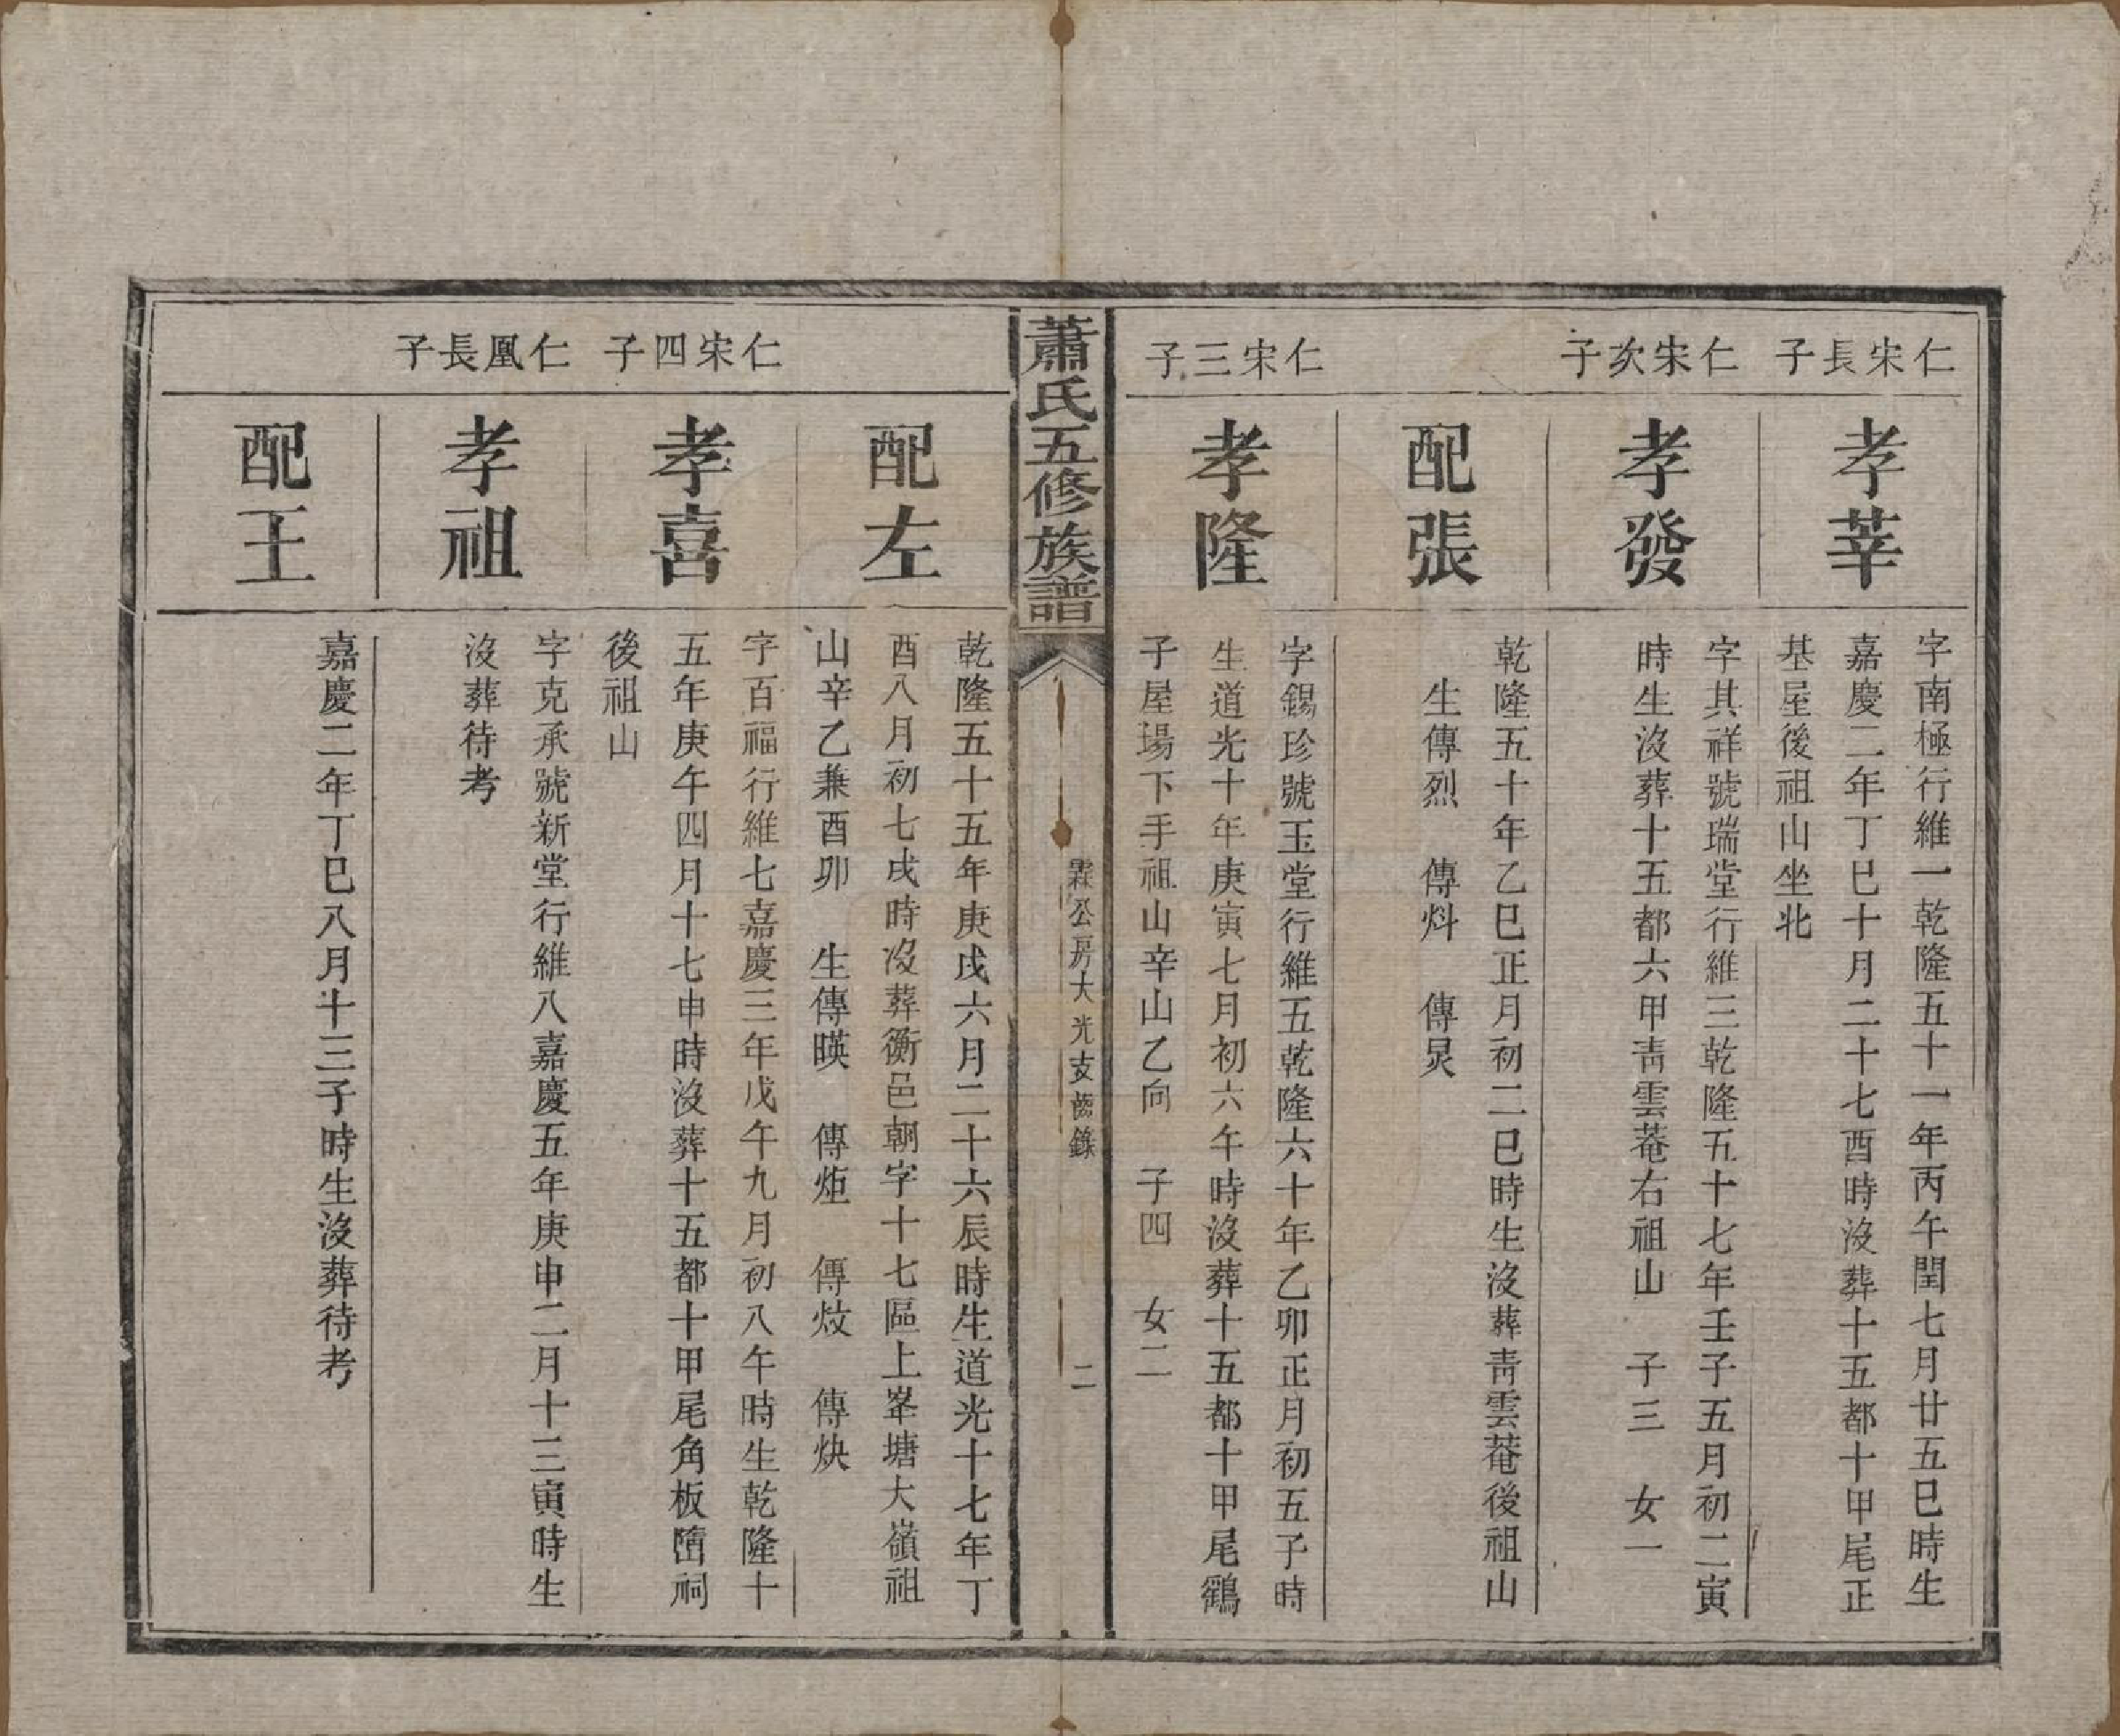 仁宋長子
孝莘
字南極行維一乾隆五十一年丙午閏七月廿五巳時生
嘉慶二年丁巳十月二十七酉時沒葬十五都十甲尾正
基屋後祖山坐北
仁宋次子
孝發
字其祥號瑞堂行維三乾隆五十七年壬子五月初二寅
時生沒葬十五都六甲靑雲菴右祖山 子三 女一
配張
乾隆五十年乙巳正月初二巳時生沒葬靑雲菴後祖山
生傳烈 傳炓 傳炅
仁宋三子
孝隆
字錫珍號玉堂行維五乾隆六十年乙卯正月初五子時
生道光十年庚寅七月初六午時沒葬十五都十甲尾鸛
子屋場下手祖山辛山乙向 子四 女二
蕭氏五修族譜
霖公房大光支齒錄
二
配左
乾隆五十五年庚戌六月二十六辰時生道光十七年丁
酉八月初七戌時沒葬衡邑朝字十七區上峯塘大嶺祖
山辛乙兼酉卯 生傳暎 傳炬 傳炆 傳炔
仁宋四子
孝喜
字百福行維七嘉慶三年戊午九月初八午時生乾隆十
五年庚午四月十七申時沒葬十五都十甲尾角板㙮祠
後祖山
仁凰長子
孝祖
字克承號新堂行維八嘉慶五年庚申二月十三寅時生
沒葬待考
配王
嘉慶二年丁巳八月十三子時生沒葬待考